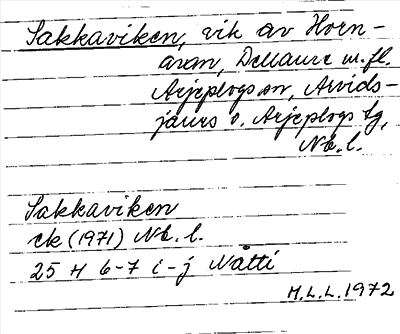 Sakkaviken, vik av Horn-
avan, Dellaure m.fl.
Arjeplogs sn, Arvids-
jaurs o. Arjeplogs tg,
Nb. l.
Sakkaviken
ek (1971) Nb. l.
25 H 6-7 i-j Nåtti
H.L.L. 1972